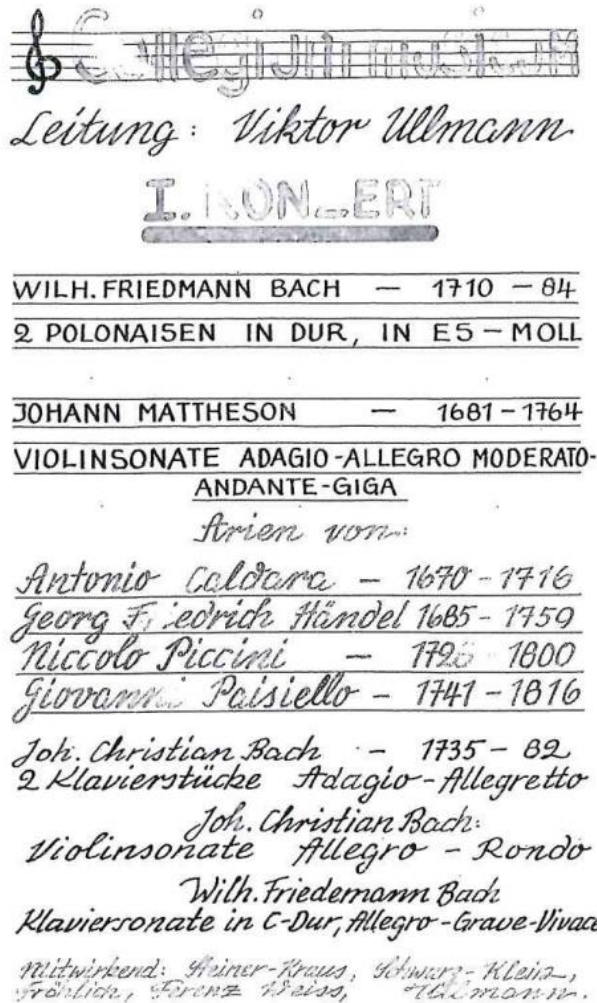 Collegium musicum
Leitung: Viktor Ullmann
I. KONZERT
WILH. FRIEDMANN BACH — 1710 - 84
2 POLONAISEN IN DUR, IN ES-MOLL
JOHANN MATTHESON — 1681 - 1764
VIOLINSONATE ADAGIO-ALLEGRO MODERATO-
ANDANTE-GIGA
Arien von:
Antonio Caldara - 1670 - 1716
Georg Friedrich Händel 1685 - 1759
Niccolo Piccini - 1728 - 1800
Giovanni Paisiello - 1741 - 1816
Joh. Christian Bach - 1735 - 82
2 Klavierstücke Adagio-Allegretto
Joh. Christian Bach:
Violinsonate Allegro - Rondo
Wilh. Friedemann Bach
Klaviersonate in C-Dur, Allegro-Grave-Vivace
Mitwirkend: Steiner-Kraus, Schwarz-Klein,
Fröhlich, Ferenz Weiss, Ullmann.